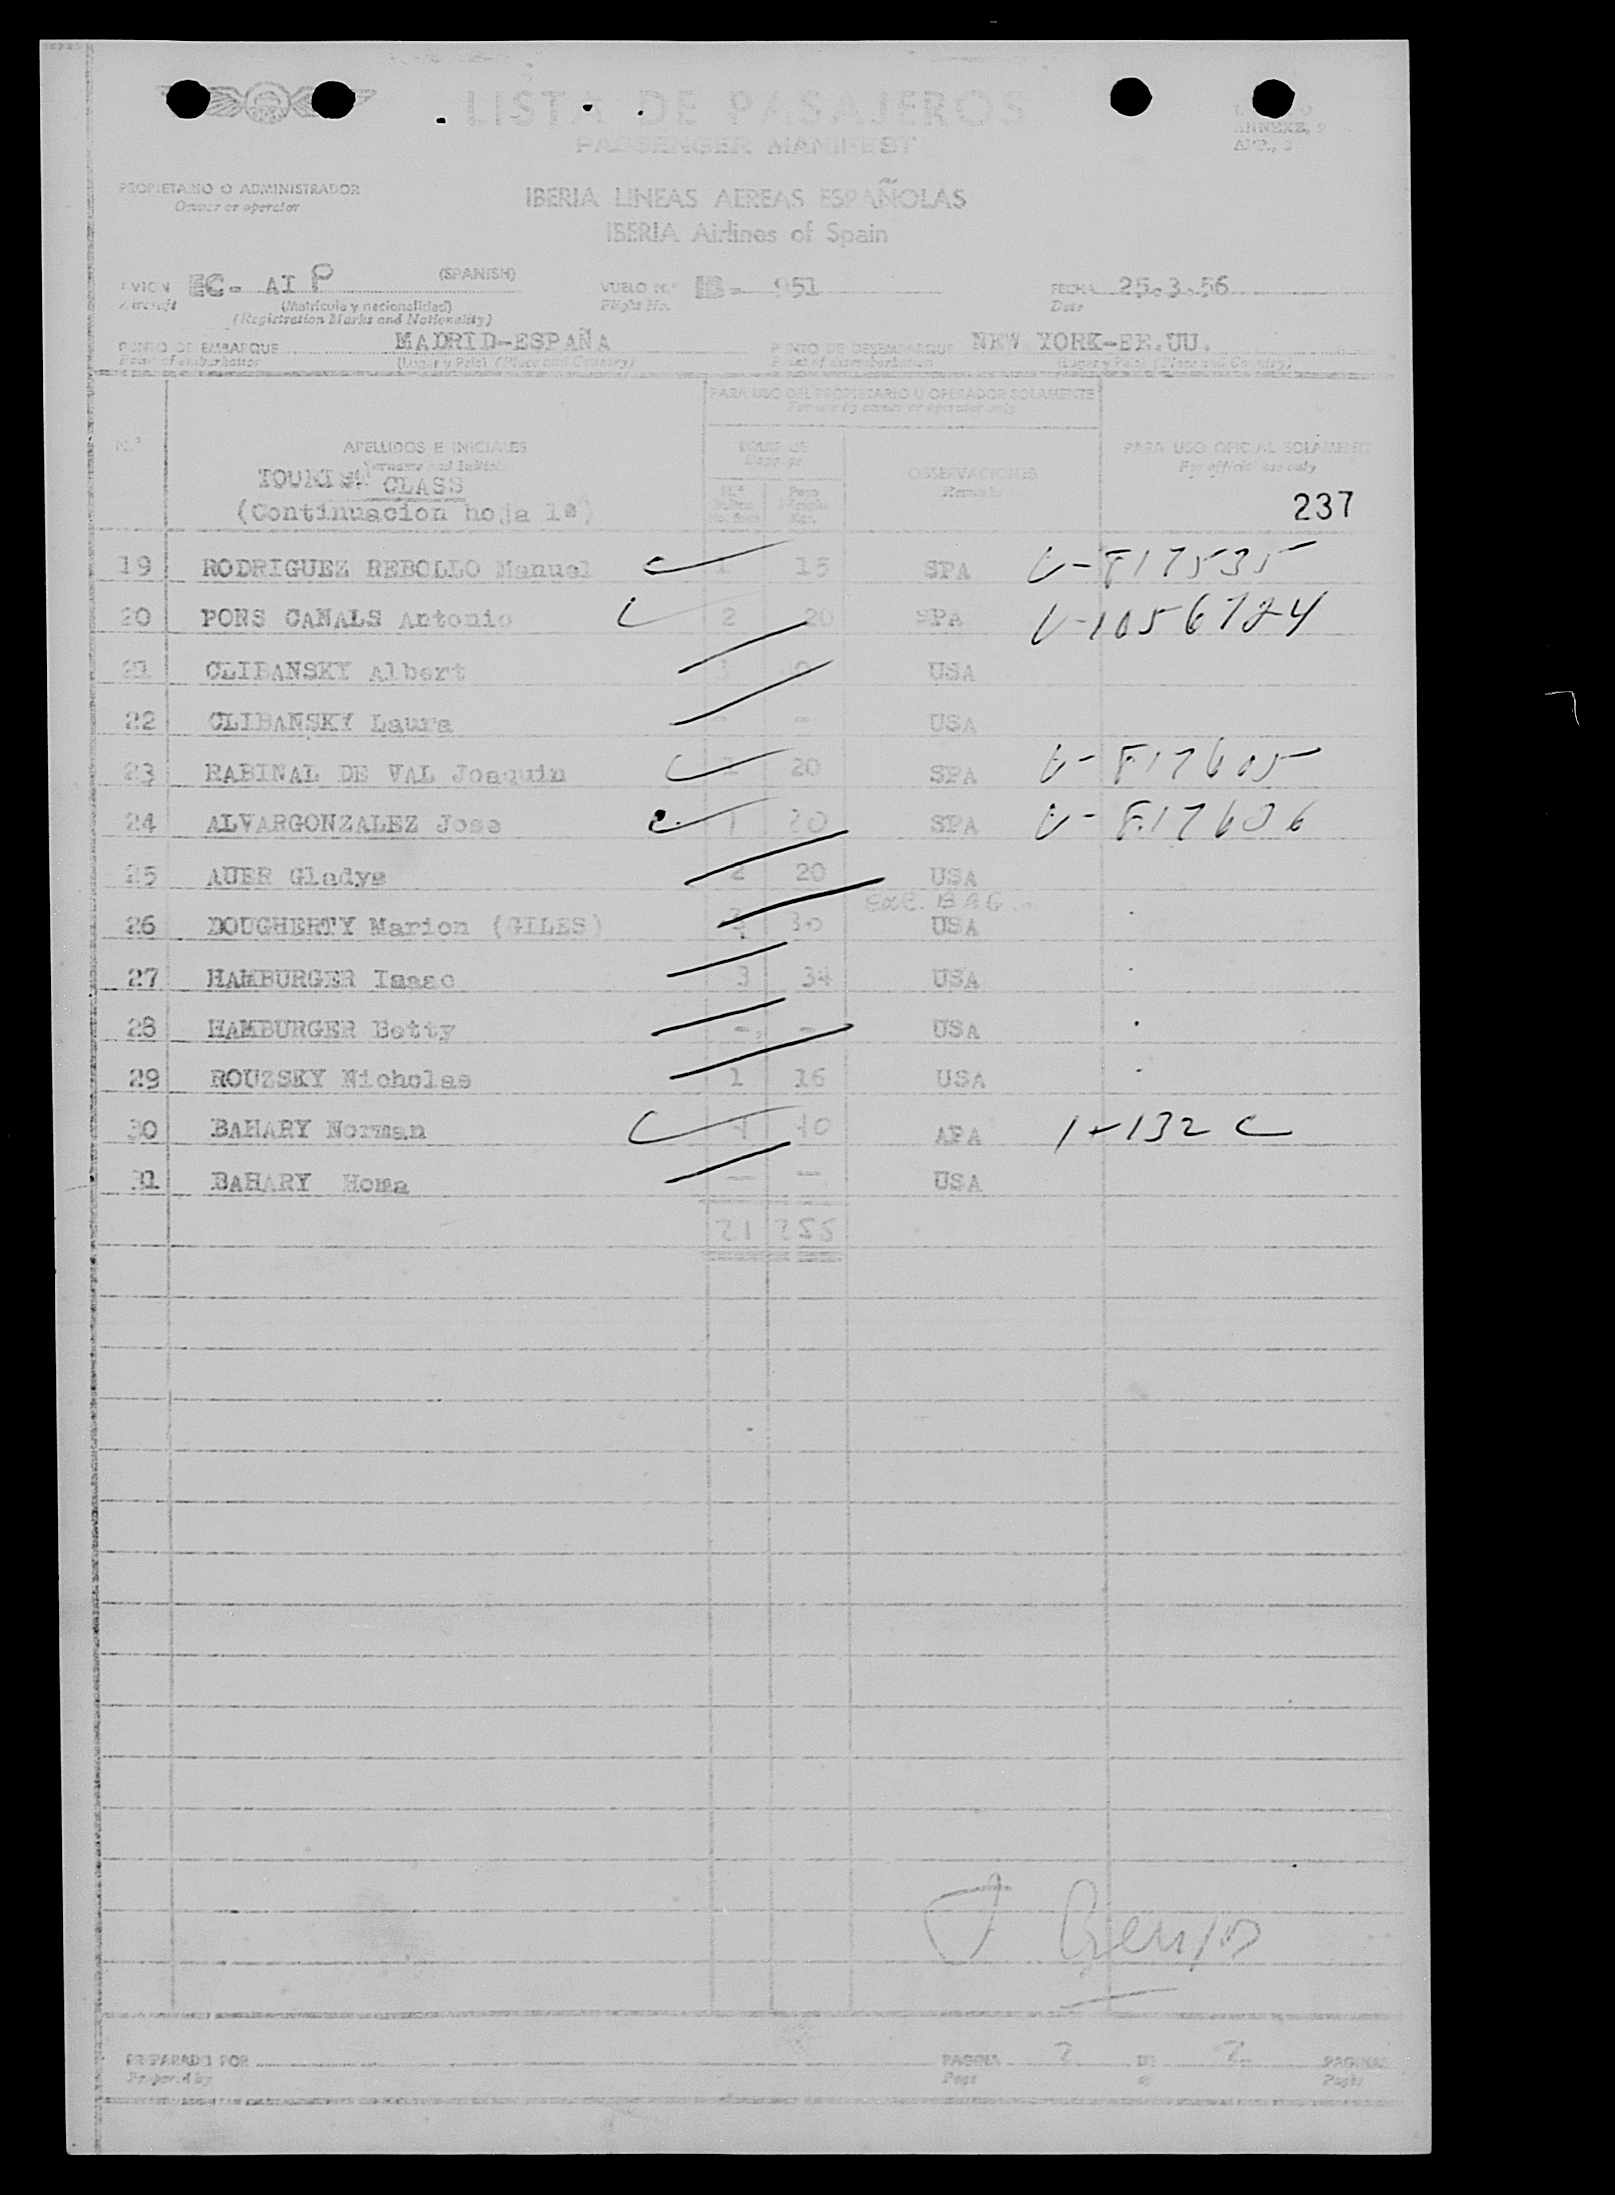 LISTA DE PASAJEROS
PASSENGER MANIFEST
ANNEXE, 9
PROPIETARIO O ADMINISTRADOR
Owner or operator
IBERIA LINEAS AEREAS ESPAÑOLAS
IBERIA Airlines of Spain
AVION EC- AI P (SPANISH) VUELO N.º IB- 951 FECHA 25.3.56
Aircraft (Matrícula y nacionalidad) Flight No. Date
(Registration Marks and Nationality)
PUNTO DE EMBARQUE MADRID-ESPAÑA PUNTO DE DESEMBARQUE NEW YORK-EE.UU.
Point of embarkation (Lugar y País) (Place and Country) Point of disembarkation (Lugar y País) (Place and Country)
PARA USO DEL PROPIETARIO U OPERADOR SOLAMENTE
For use by owner or operator only
N.º APELLIDOS E INICIALES OBSERVACIONES PARA USO OFICIAL SOLAMENTE
Surname and Initials Remarks For official use only
TOURIST CLASS
(Continuacion hoja 1ª) 237
19 RODRIGUEZ REBOLLO Manuel 1 15 SPA V-F17535
20 PONS CANALS Antonio 2 20 SPA V-1056724
21 CLIBANSKY Albert USA
22 CLIBANSKY Laura - - USA
23 RABINAL DE VAL Joaquin 20 SPA V-F17605
24 ALVARGONZALEZ Jose 1 20 SPA V-F17606
25 AUER Gladys 2 20 USA
EXC. BAG.
26 DOUGHERTY Marion (GILES) 30 USA
27 HAMBURGER Isaac 3 34 USA
28 HAMBURGER Betty - - USA
29 ROUZSKY Nicholas 1 16 USA
30 BAHARY Norman 1 10 APA
31 BAHARY Homa - - USA
21 255
PREPARADO POR PAGINA 2 DE 2 PAGINAS
Prepared by Page of Pages